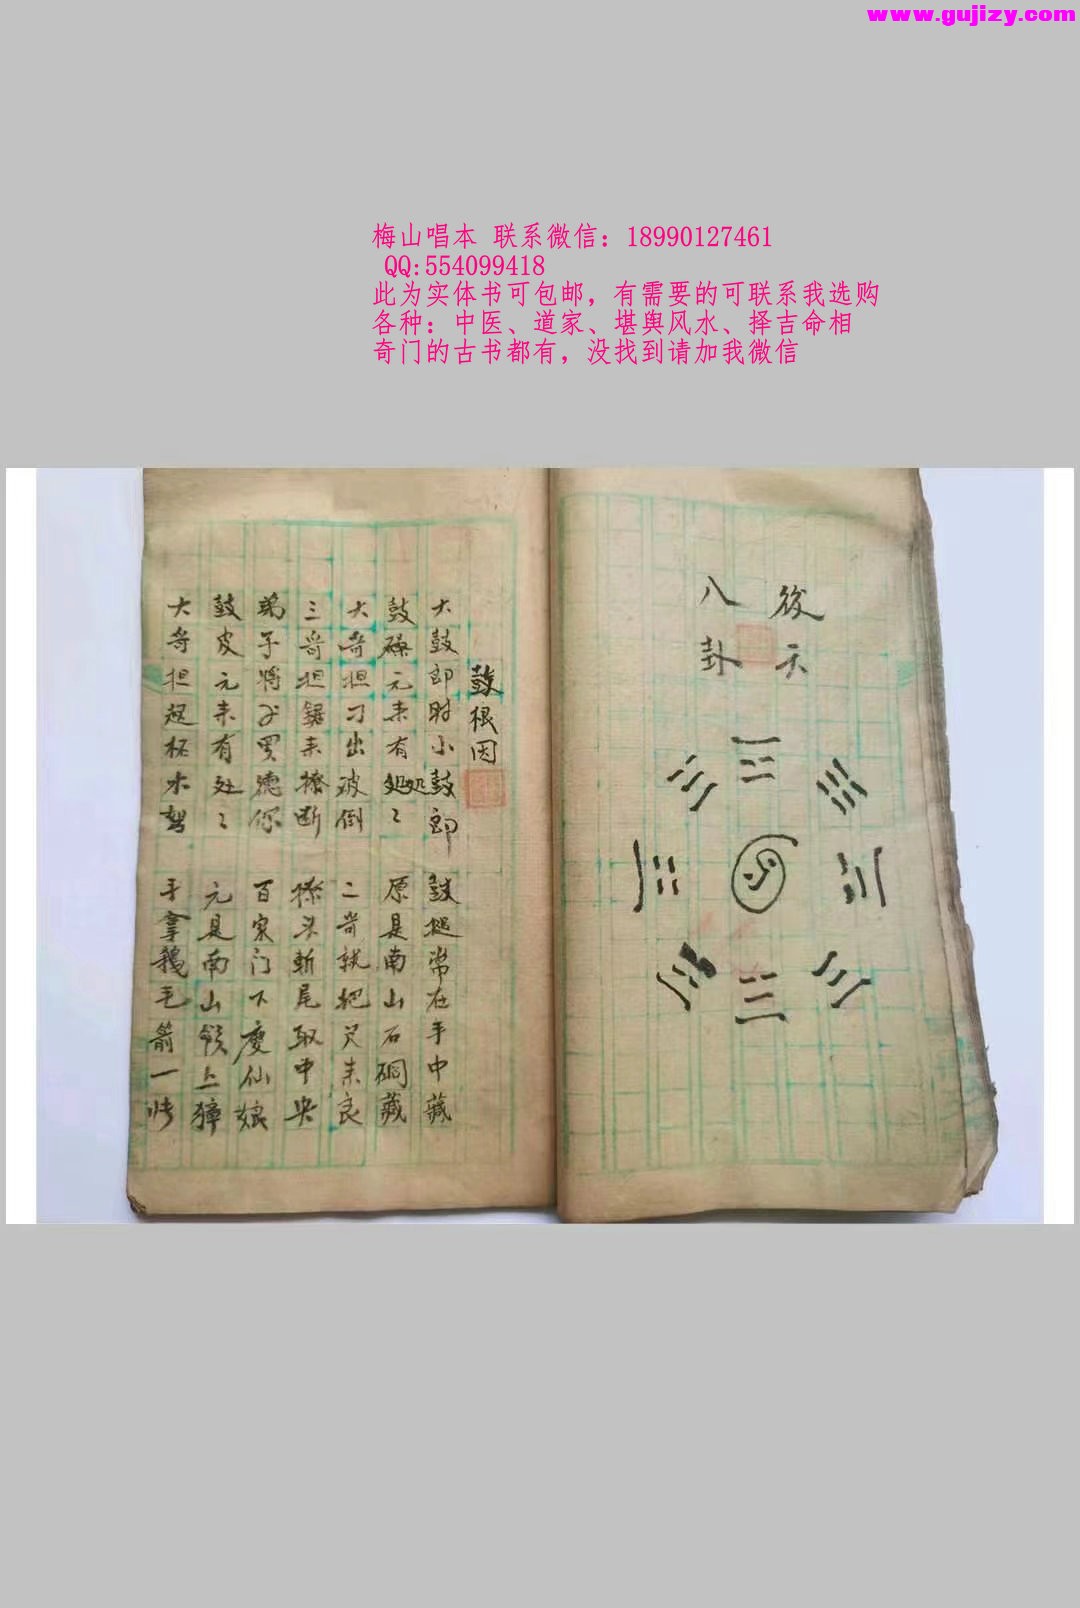 www.gujizy.com
梅山唱本 联系微信：18990127461
QQ:554099418
此为实体书可包邮，有需要的可联系我选购
各种：中医、道家、堪舆风水、择吉命相
奇门的古书都有，没找到请加我微信
後天
八卦
鼓根因
大鼓郎时小鼓郎 鼓槌常在手中藏
鼓磉元来有処処〻 原是南山石硐藏
大哥担刁出坡倒 二哥就把尺来良
三哥担鋸来撩断 撩头斩尾取中央
弟子将 買德你 百家门下慶仙娘
鼓皮元来有处〻 元是南山嶺上獐
大哥担起柘木弩 手拿鵝毛箭一